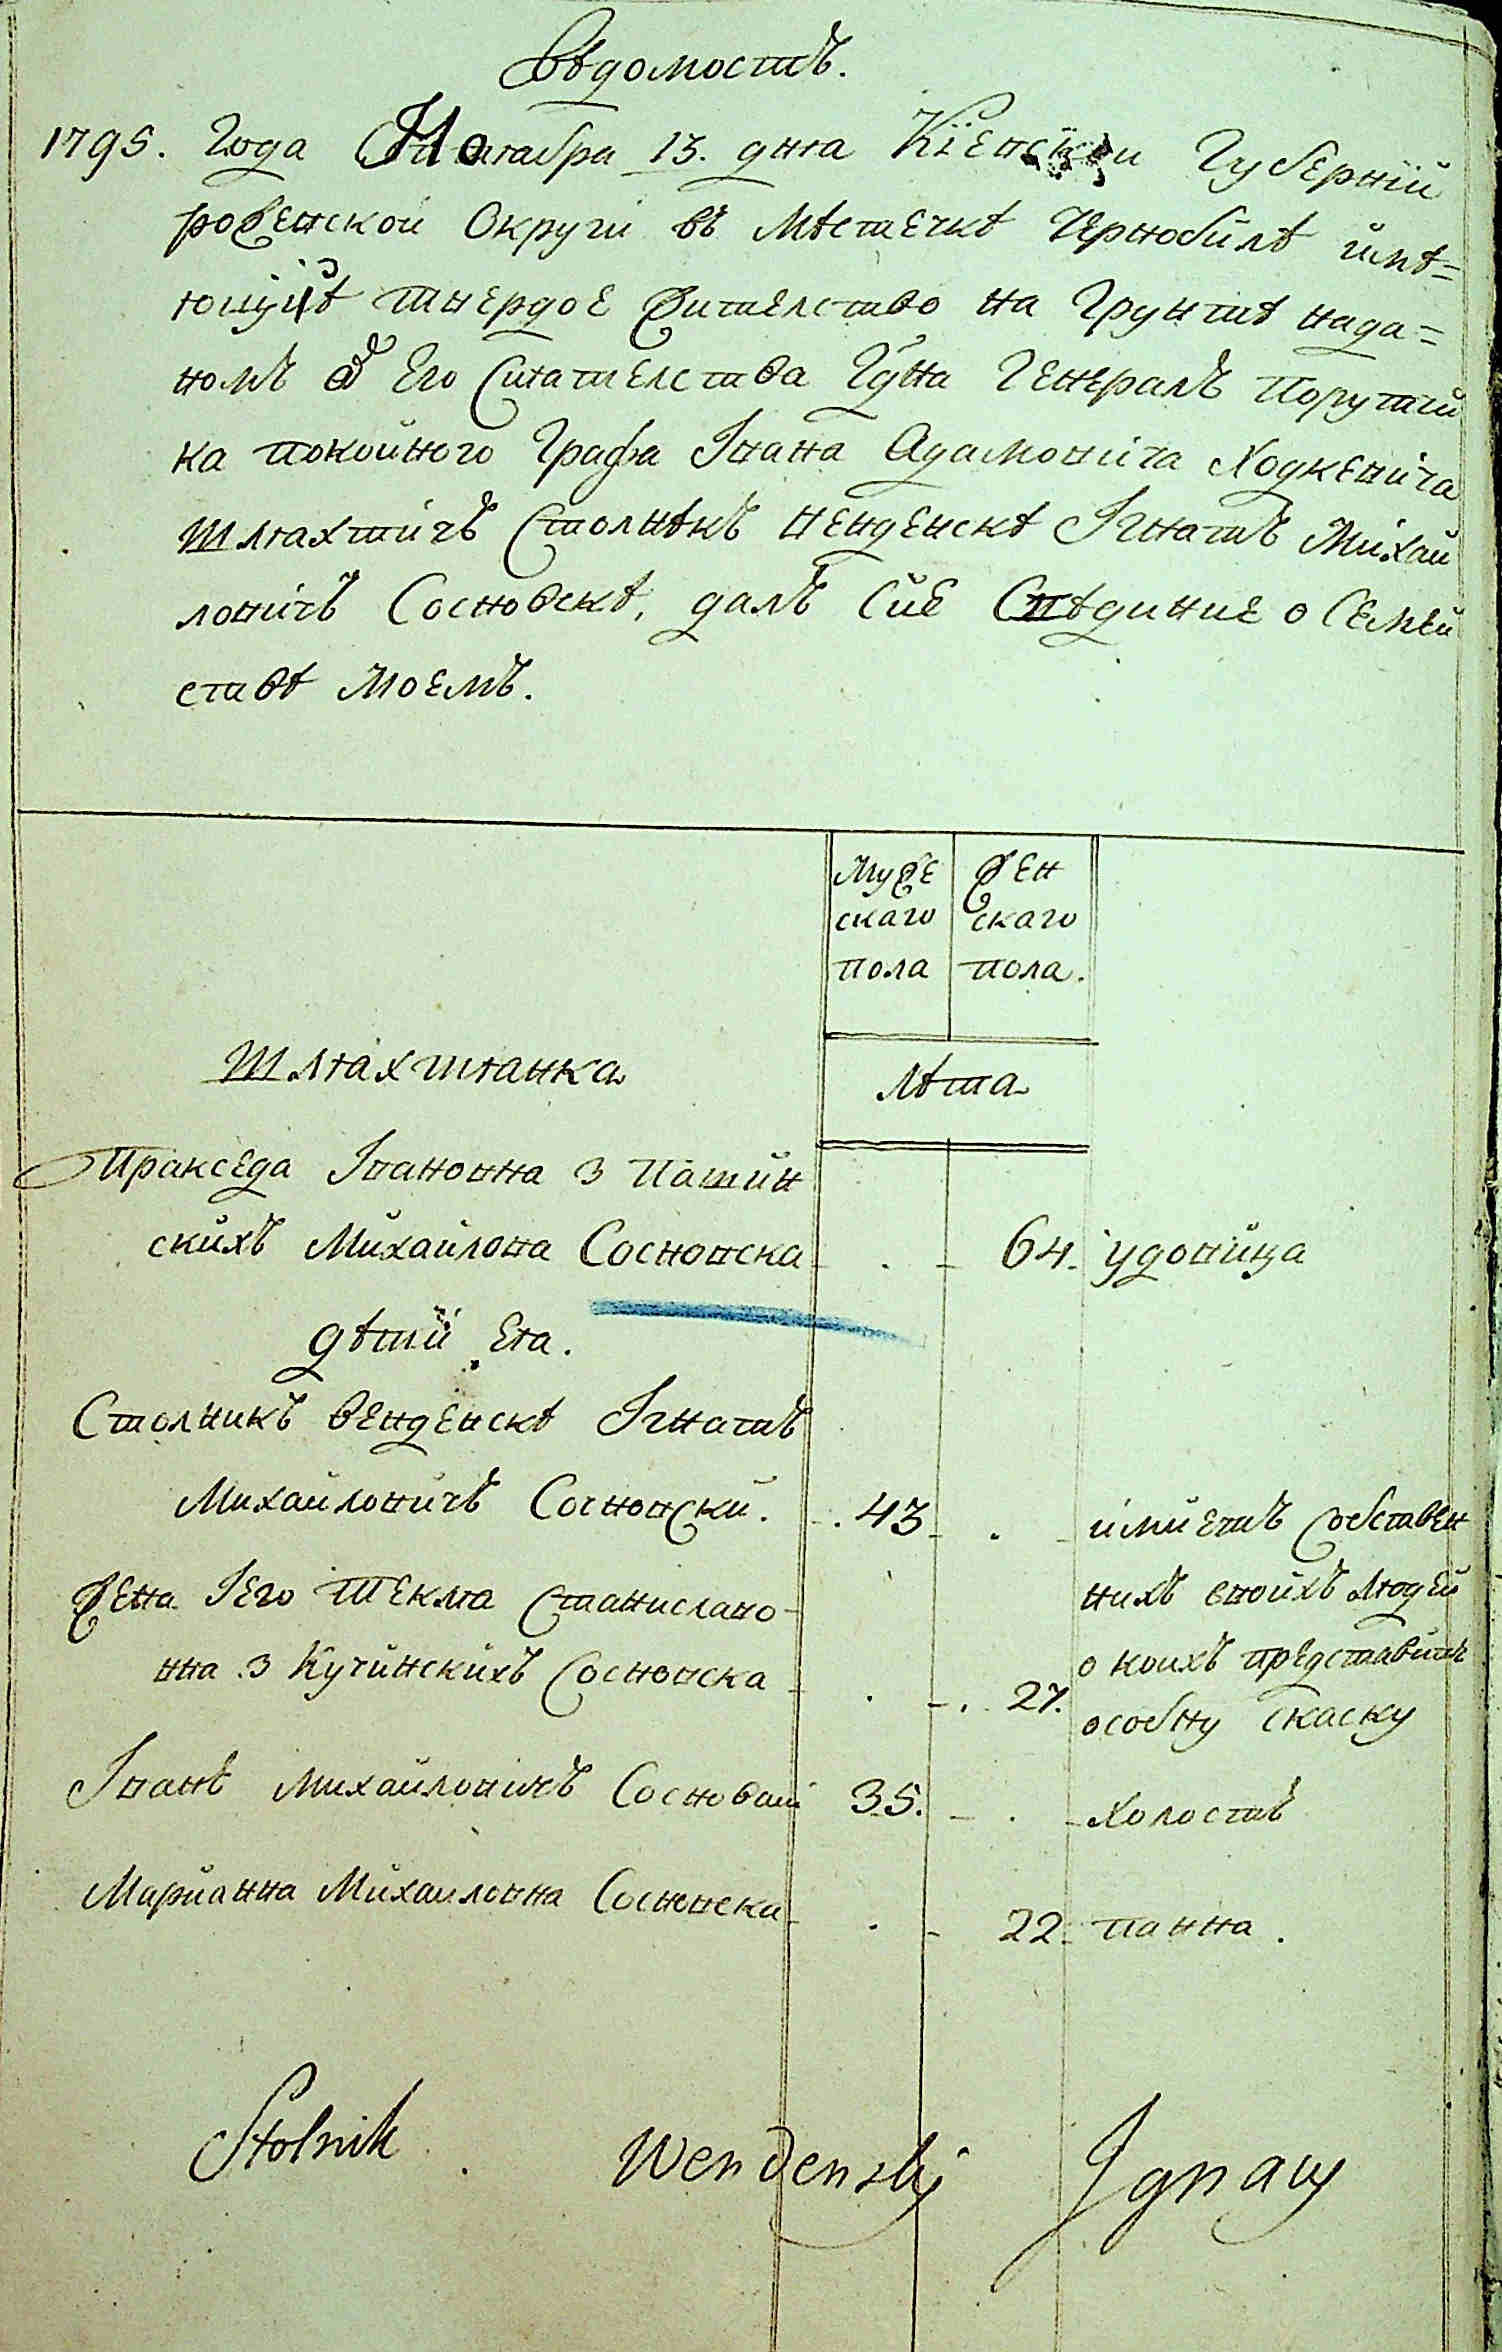 Вѣдомость.
1795. Года Ноитабра 13. дня Кіевской Губерніи
ровенской Округи въ мѣстечкѣ Чернобилѣ имѣ=
ющий твердое житэлство на Грунтѣ нада=
номъ ѿ Его Сиятелства Гдна Генералъ Порутчи
ка покойного Графа Івана Адамовича Ходкевича
шляхтичъ Столнѣкъ венденскѣ Ігнатъ Міхай
ловичъ Сосновскѣ, далъ Сие Свѣдиние о Семей
ствѣ моемъ.
Муже
скаго
пола
Жен
скаго
пола.
Шляхтянка
лѣта
Пракседа Івановна з Патин
скихъ Михайлова Сосновска - . - 64. удовица
дѣтии ея.
Столникъ венденскѣ Ігнатъ
Михайловичъ Сосновски. - . 43 - . - имиетъ собствен
Жена Іего Текля Станиславо-
нихъ своихъ людей
вна з Кучинскихъ Сосновска - . - . 27.
о коихъ представитъ
особну скаску
Іванъ Михайловичъ Сосновски 35. - . - холостъ
Марианна Михайловна Сосновска - . - 22. панна.
Stolnik Wendenski Ignacy